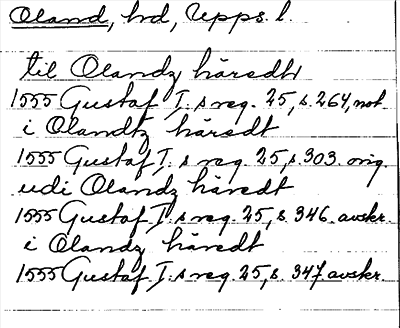 Oland, hrd, Upps. l.
til Olandz häredt
1555 Gustaf I:s reg. 25, s. 264, not.
i Olandtz häredt
1555 Gustaf I:s reg. 25, s. 303. orig.
udi Olandz häredt
1555 Gustaf I:s reg. 25, s. 346. avskr.
i Olandz häredt
1555 Gustaf I:s reg. 25, s. 347 avskr.